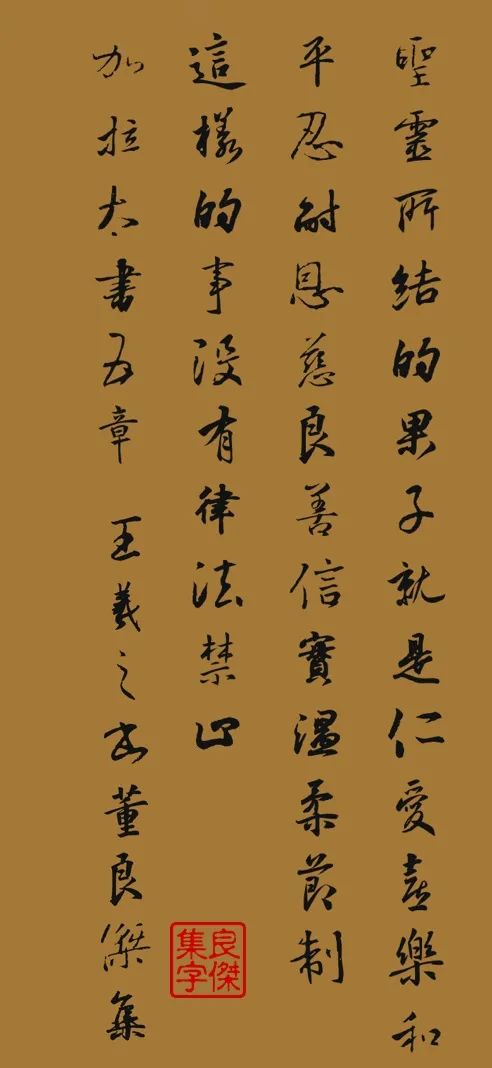 聖靈所結的果子就是仁愛喜樂和
平忍耐恩慈良善信實溫柔節制
這樣的事沒有律法禁止
加拉太書五章 王羲之書董良傑集
良傑
集字